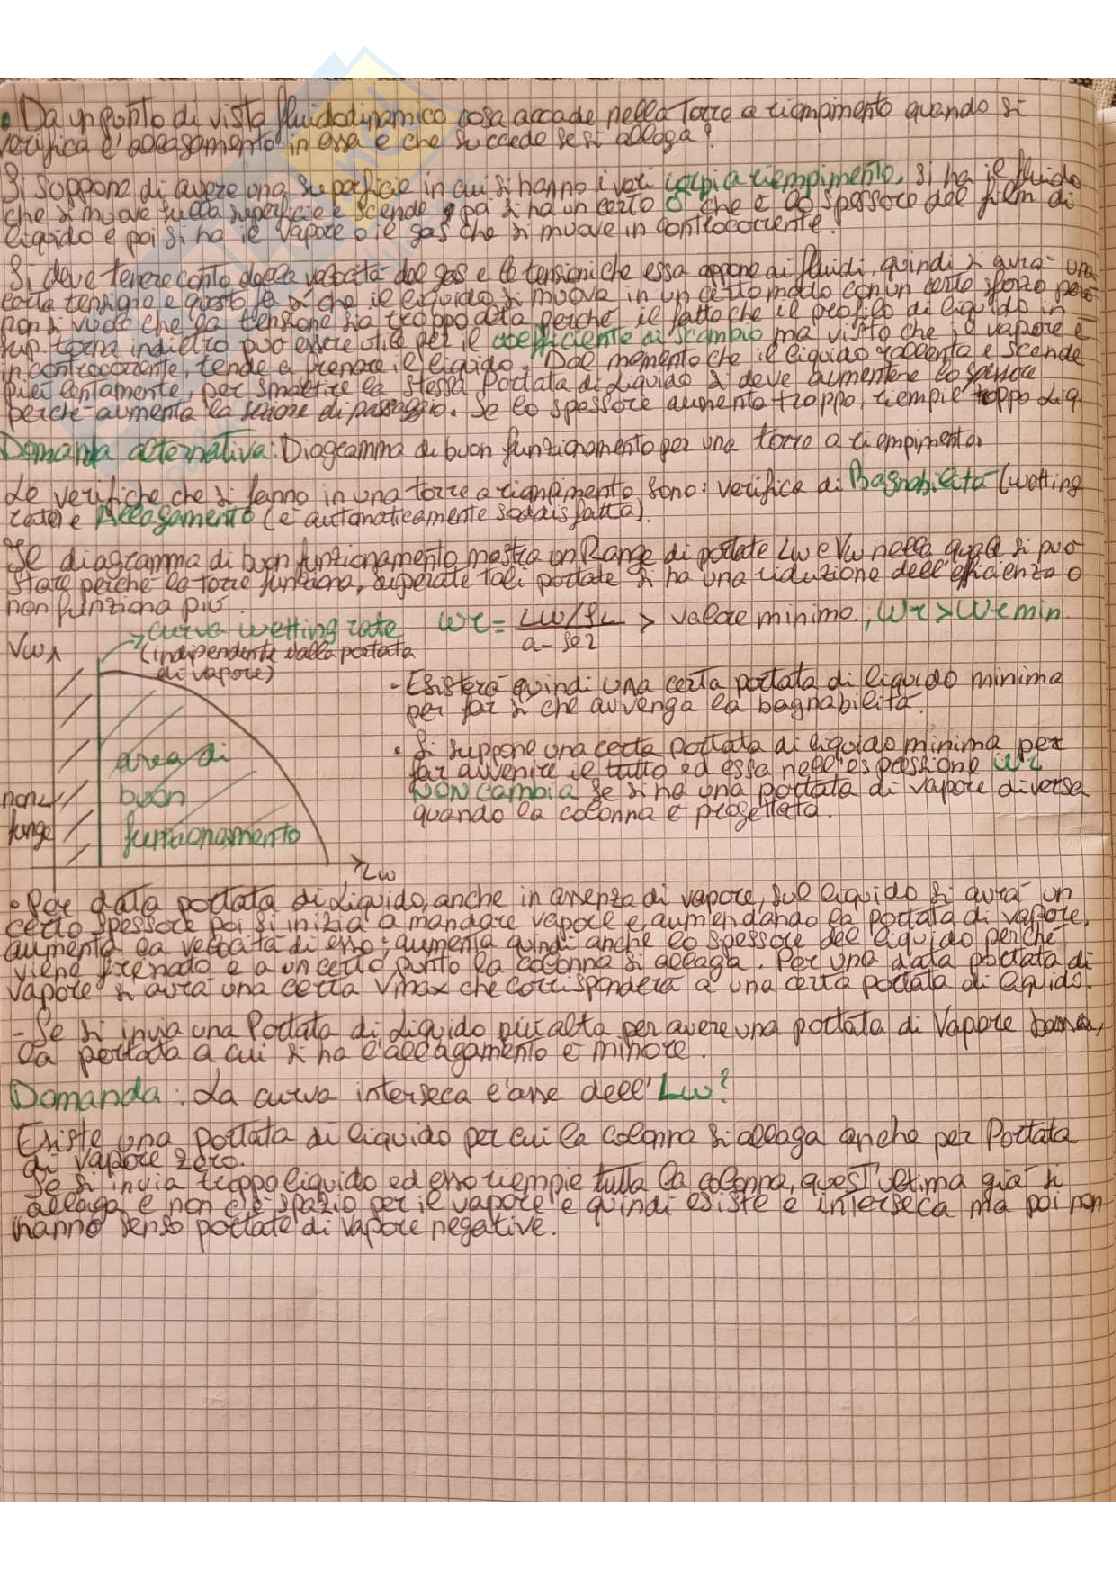 • Da un punto di vista fluidodinamico cosa accade nella Torre a riempimento quando si
verifica l'allagamento in essa e che succede se si allaga?
Si suppone di avere una superficie in cui si hanno i vari corpi a riempimento, si ha il fluido
che si muove sulla superficie e scende e poi si ha un certo δ che è lo spessore del film di
liquido e poi si ha il vapore o il gas che si muove in controcorrente.
Si deve tenere conto della velocità del gas e le tensioni che essa oppone ai fluidi, quindi si avrà una
certa tensione e questo fa sì che il liquido si muova in un certo modo con un certo sforzo però
non si vuole che la tensione sia troppo alta perché il fatto che il profilo di liquido in
sup. torna indietro può essere utile per il coefficiente di scambio ma visto che il vapore è
in controcorrente, tende a frenare il liquido. Dal momento che il liquido rallenta e scende
più lentamente, per smaltire la stessa Portata di Liquido si deve aumentare lo spessore
perché aumenta la sezione di passaggio. Se lo spessore aumenta troppo, riempie troppo liq.
Domanda alternativa: Diagramma di buon funzionamento per una torre a riempimento.
Le verifiche che si fanno in una torre a riempimento sono: verifica di Bagnabilità (wetting
rate) e Allagamento (è automaticamente soddisfatta).
Il diagramma di buon funzionamento mostra un Range di portate Lw e Vw nella quale si può
stare perché la torre funziona, superate tali portate si ha una riduzione dell'efficienza o
non funziona più.
Vw
curva wetting rate
(indipendente dalla portata
di vapore)
wr = Lw/ρL / a-sez > valore minimo; wr > wr min.
non
funge
area di
buon
funzionamento
Lw
- Esisterà quindi una certa portata di liquido minima
per far sì che avvenga la bagnabilità.
• Si suppone una certa portata di liquido minima per
far avvenire il tutto ed essa nell'espressione wr
NON CAMBIA se si ha una portata di vapore diversa
quando la colonna è progettata.
• Per data portata di Liquido, anche in assenza di vapore, sul liquido si avrà un
certo spessore poi si inizia a mandare vapore e aumentando la portata di vapore,
aumenta la velocità di esso; aumenta quindi anche lo spessore del liquido perché
viene frenato e a un certo punto la colonna si allaga. Per una data portata di
vapore si avrà una certa Vmax che corrisponderà a una certa portata di liquido.
- Se si invia una Portata di Liquido più alta per avere una portata di Vapore bassa,
la portata a cui si ha l'allagamento è minore.
Domanda: La curva interseca l'asse dell'Lw?
Esiste una portata di liquido per cui la colonna si allaga anche per Portata
di vapore zero.
Se si invia troppo liquido ed esso riempie tutta la colonna, quest'ultima già si
allaga e non c'è spazio per il vapore e quindi esiste e interseca ma poi non
hanno senso portate di vapore negative.